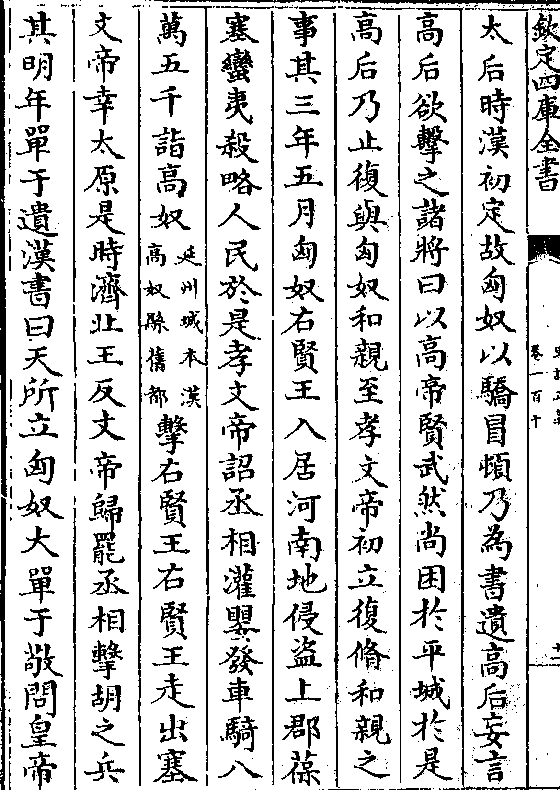 欽定四庫全書
卷一百十
太后時漢初定故匈奴以驕冒頓乃為書遺高后妄言
高后欲擊之諸將曰以高帝賢武然尚困於平城於是
高后乃止復與匈奴和親至孝文帝初立復脩和親之
事其三年五月匈奴右賢王入居河南地侵盜上郡葆
塞蠻夷殺略人民於是孝文帝詔丞相灌嬰發車騎八
萬五千詣高奴延州城本漢高奴縣舊都擊右賢王右賢王走出塞
文帝幸太原是時濟北王反文帝歸罷丞相擊胡之兵
其明年單于遺漢書曰天所立匈奴大單于敬問皇帝